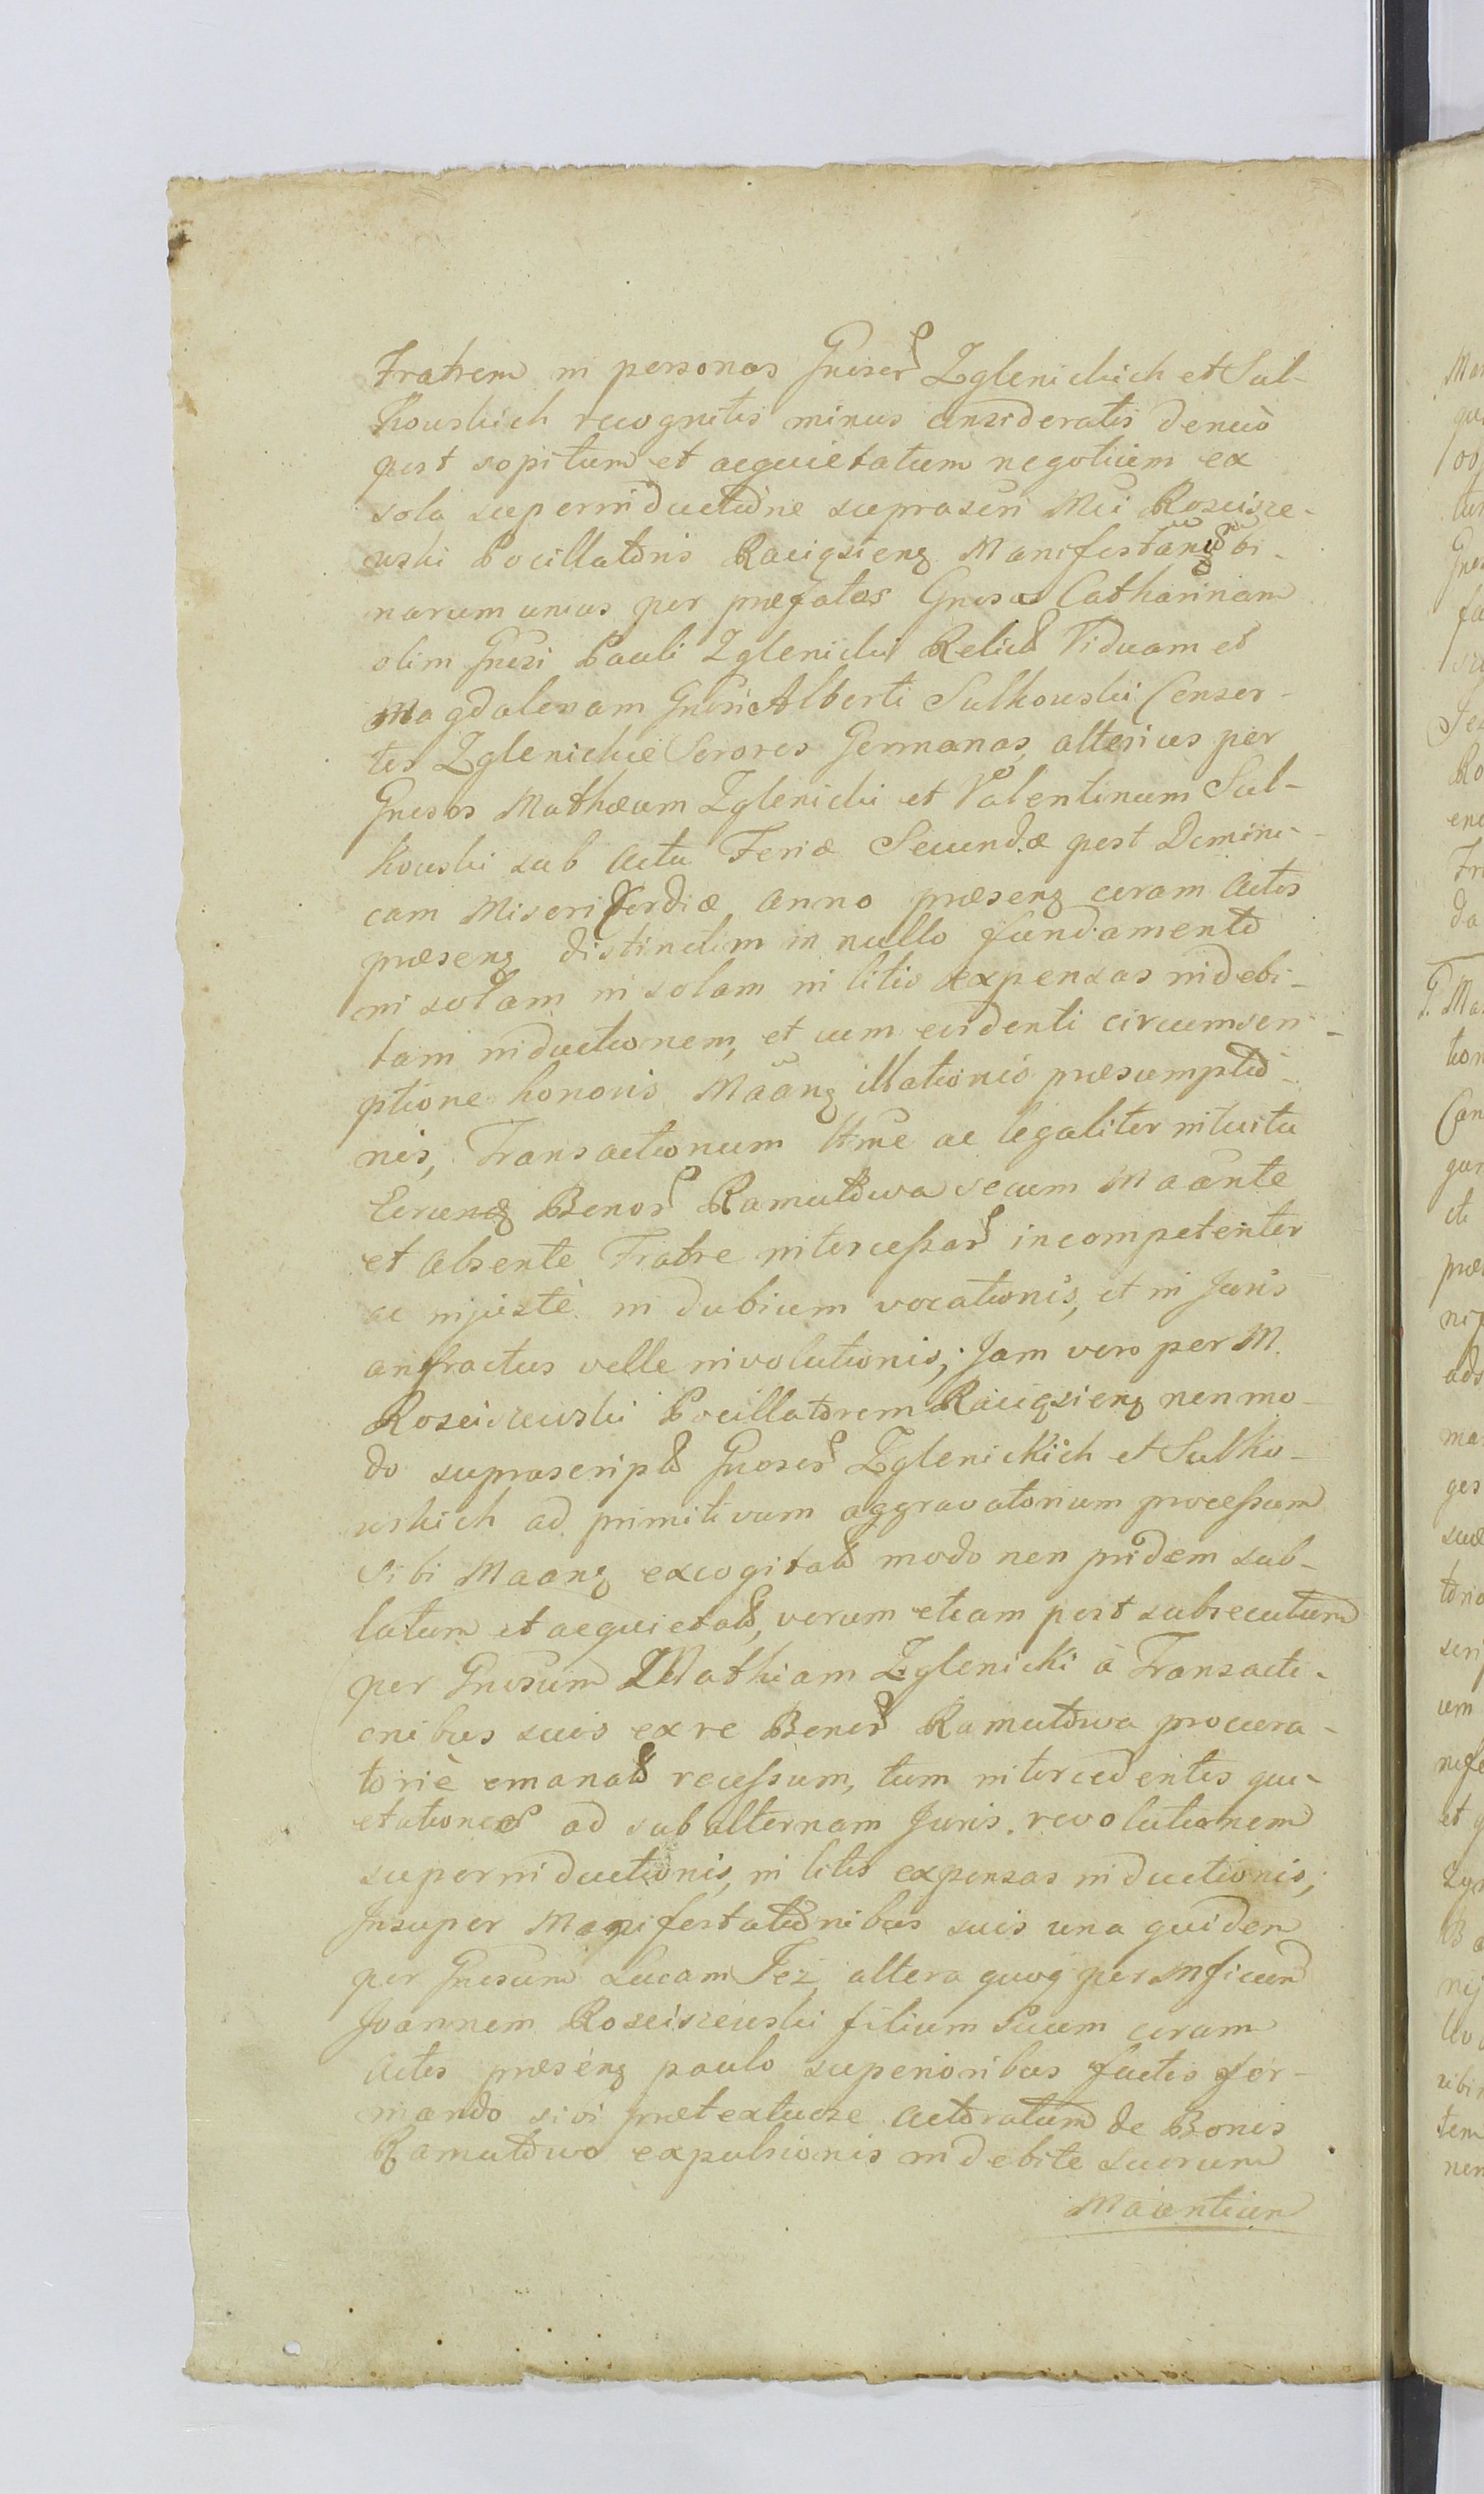 Fratrem in personas Gnoser Zglenickich et Sul-
kouskich recognitis minus consideratis denuò
post sopitum et acquietatum negotium ex
sola superinductione suprascri Mci Rosciszew-
uski Pocillatoris Raciąźien Manifestaōnū bi-
narum unius per præfatas Gnosas Catharinam
olim Gnosi Pauli Zglenicki Relict Viduam et
Magdalenam Gnosi Alberti Sulkouski Consor-
tes Zglenickie Sorores Germanas, alterius per
Gnosos Mathæum Zglenicki et Valentinum Sul-
kouski sub actu Feriæ Secundæ post Domini-
cam Misericordiæ anno præsen coram Actis
præsen distinctim in nullo fundamento
in solam in solam in litis expensas indebi-
tam inductionem, et cum evidenti circumscri-
ptione honoris Maan illationis præsumptio-
nis, Transactionum ac legaliter intuitu
Bonor Ramutowa secum Maante
et Absente Fratre intercessar incompetenter
ac injustè in dubium vocationis, et in Juris
anfractus velle involutionis; Jam vero per M.
Rosciszewski Pocillatorem Raciąźien non mo-
do suprascript Gnoser Zglenickich et Sulko-
uskich ad primitivum aggravatorium processum
sibi Maan excogitat modo non pridem sub-
latum et acquietat, verum etiam post subsecutum
per Gnosum Mathiam Zglenicki à Transacti-
onibus suis ex re Bonor Ramutowa procura-
toriè emanat recessum, tum intercedentis qui-
etationes ad subalternam Juris revolutionem
superinductionis, in litis expensas inductionis;
Insuper Manifestationibus suis una quidem
per Gnosum Lucam Jeż, altera quoq per Mficum
Joannem Rosciszewski filium Suum coram
Actis præsen paulo superioribus factis for-
mando sivi prætextuose actoratum de Bonis
Ramutowo expulsionis indebite suorum
Maantium